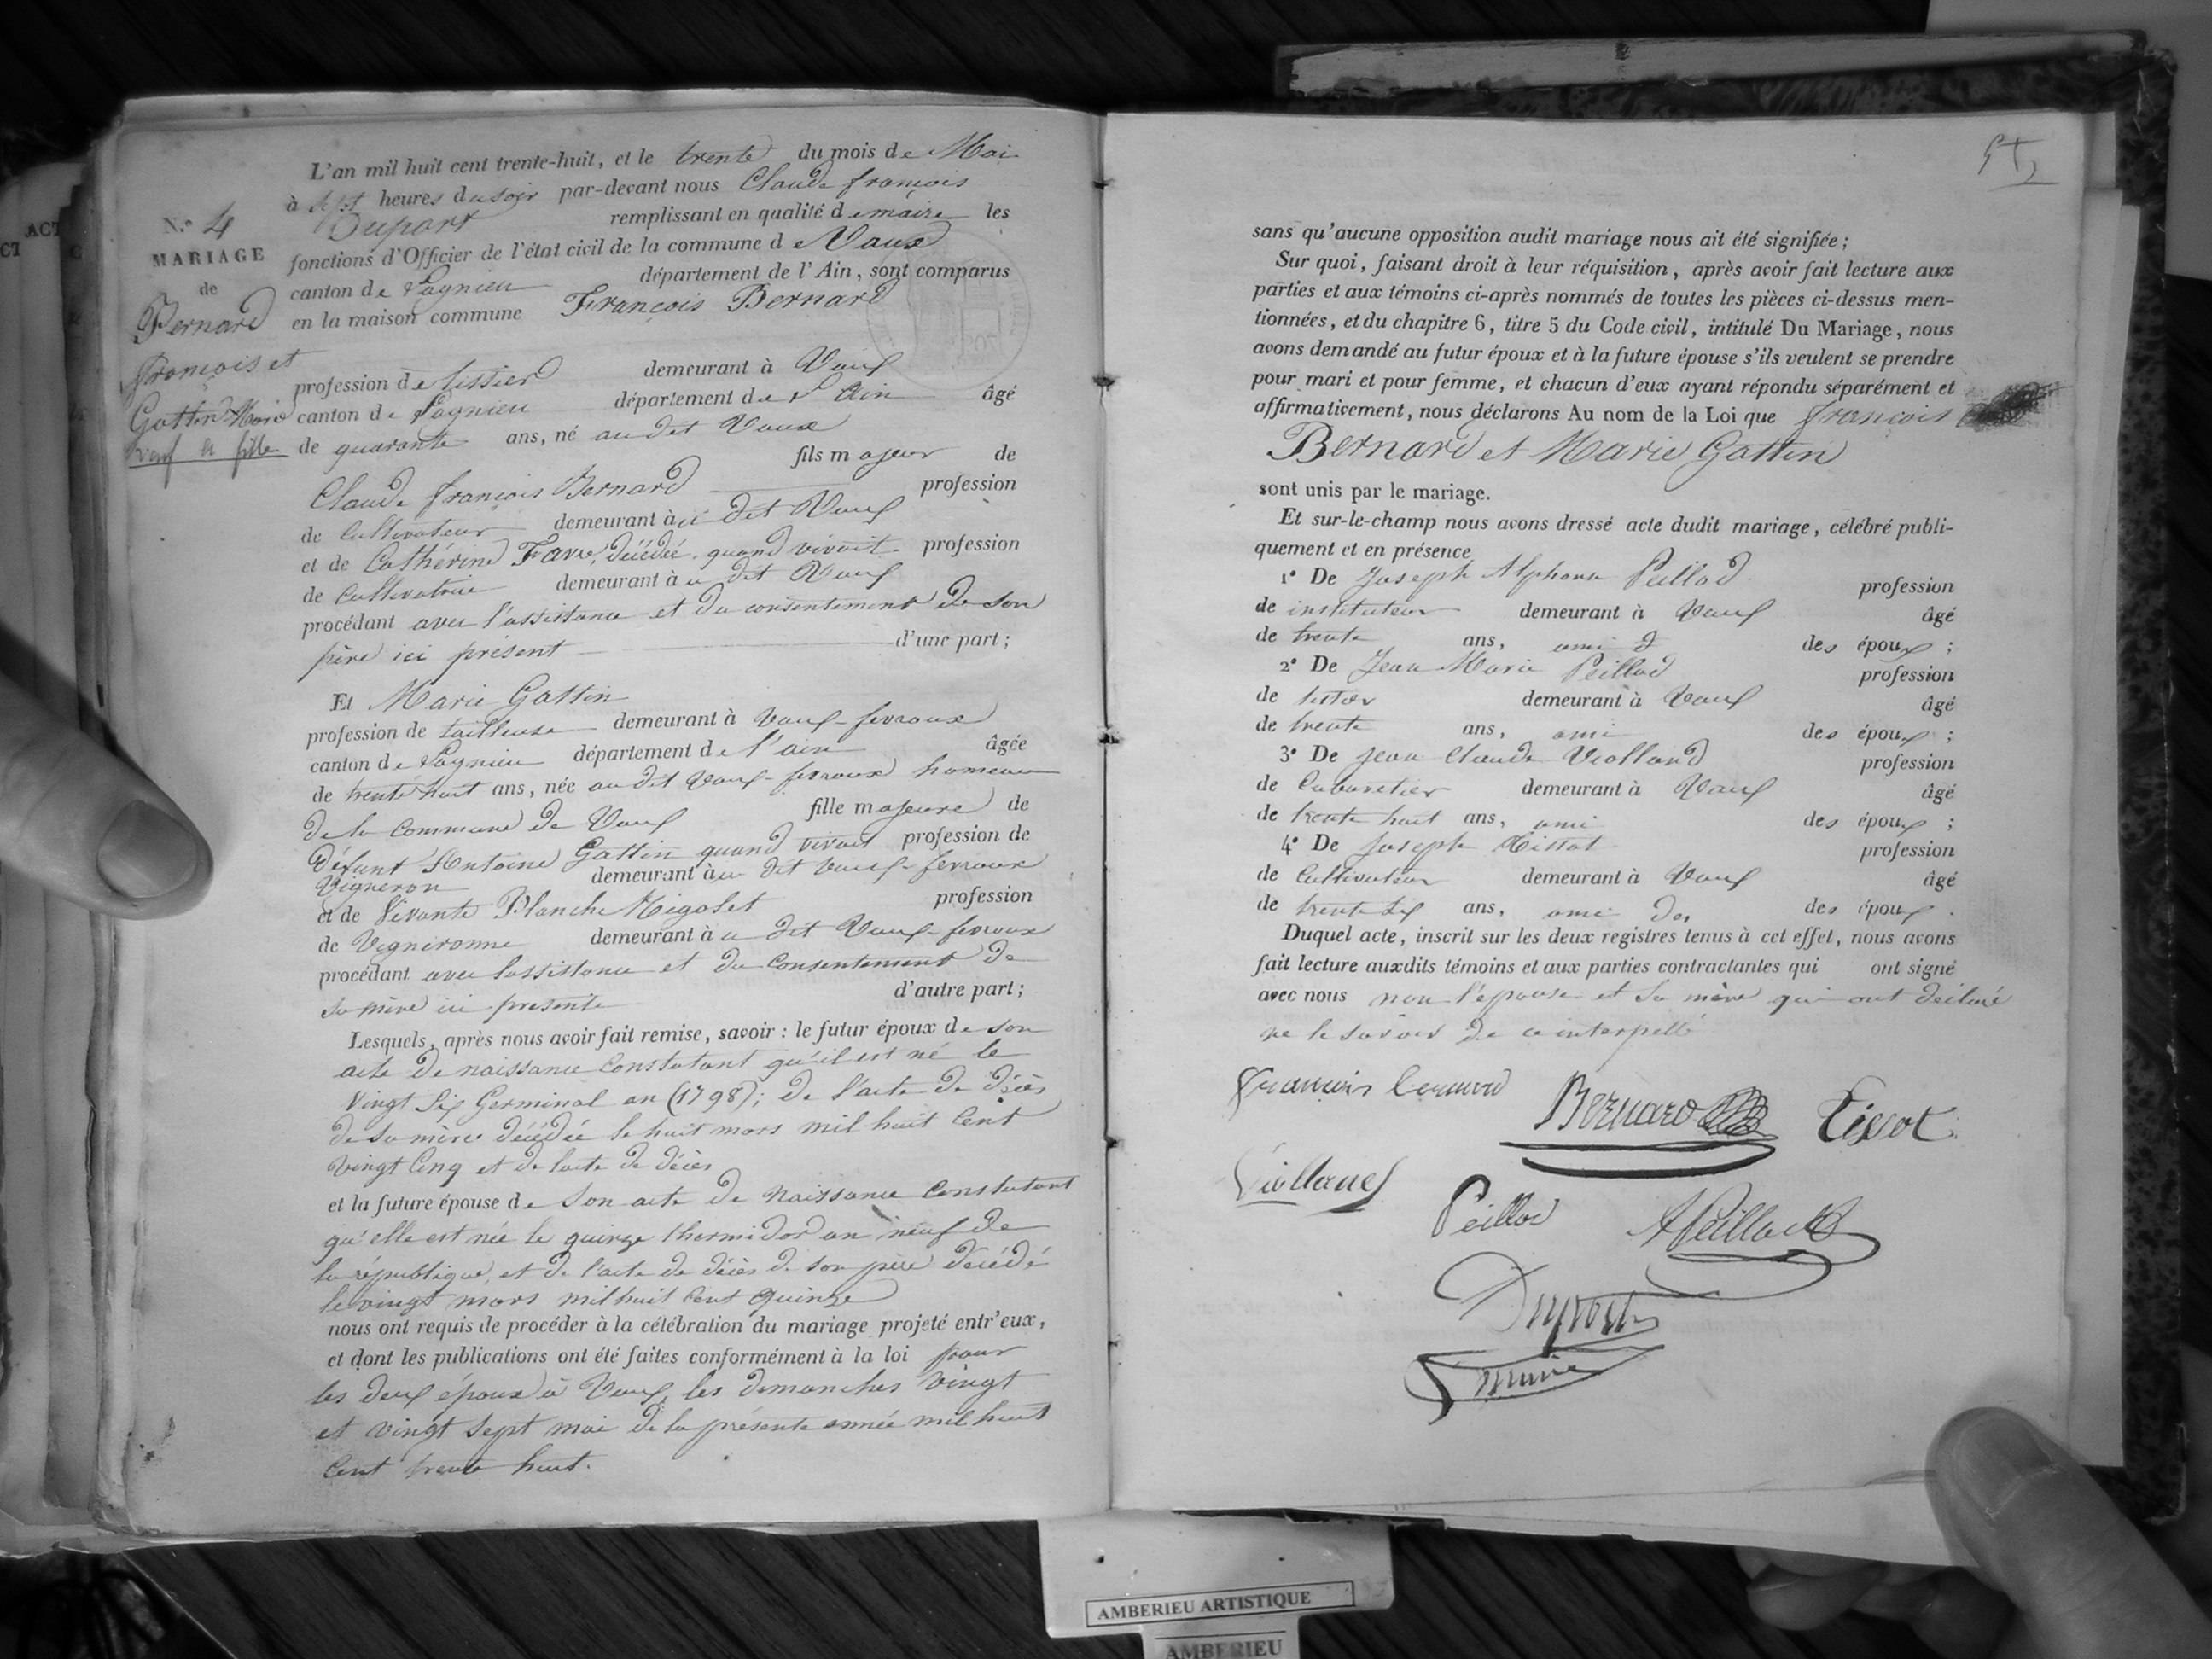 L'an mil huit cent trente-huit, et le trente du mois de Mai
à sept heures du soir par-devant nous Claude françois
Duport remplissant en qualité de maire les
fonctions d'Officier de l'état civil de la commune de Vaux
canton de Lagnieu département de l'Ain, sont comparus
en la maison commune François Bernard
N.° 4
MARIAGE
de
Bernard
françois et
Gattin Marie
veuf et fille
profession de tissier demeurant à Vaux
canton de Lagnieu département de l'Ain âgé
de quarante ans, né au dit Vaux
fils majeur de
Claude françois Bernard profession
de Cultivateur demeurant à u dit Vaux
et de Cathérine Favre, décédée, quand vivait profession
de Cultivatrice demeurant à u dit Vaux
procédant avec l'assistance et du consentement de son
père ici présent d'une part ;
Et Marie Gattin
profession de tailleuse demeurant à Vaux-fevroux
canton de Lagnieu département de l'ain âgée
de trente huit ans, née au dit Vaux-fevroux hameau
de la Commune de Vaux fille majeure de
Défunt Antoine Gattin quand vivait profession de
Vigneron demeurant à u dit Vaux-fevroux
et de Vivante Blanche Migolet profession
de Vigneronne demeurant à u dit Vaux-fevroux
procédant avec lassistance et du Consentement de
sa mère ici presente d'autre part ;
Lesquels, après nous avoir fait remise, savoir : le futur époux de son
acte de naissance Constatant qu'il est né le
Vingt Six Germinal an (1798) ; de l'acte de décès
de sa mère décédée le huit mars mil huit Cent
Vingt Cinq et de lacte de décès
et la future épouse de Son acte de Naissance Constatant
qu'elle est née le quinze thermidor an neuf de
la république, et de l'acte de décès de son père décédé
le vingt mars mil huit Cent Quinze
nous ont requis de procéder à la célébration du mariage projeté entr'eux,
et dont les publications ont été faites conformément à la loi pour
les deux époux à Vaux, les dimanches Vingt
et vingt sept mai de la présente année mil huit
Cent trente huit.
sans qu'aucune opposition audit mariage nous ait été signifiée ;
Sur quoi, faisant droit à leur réquisition, après avoir fait lecture aux
parties et aux témoins ci-après nommés de toutes les pièces ci-dessus men-
tionnées, et du chapitre 6, titre 5 du Code civil, intitulé Du Mariage, nous
avons demandé au futur époux et à la future épouse s'ils veulent se prendre
pour mari et pour femme, et chacun d'eux ayant répondu séparément et
affirmativement, nous déclarons Au nom de la Loi que françois
Bernard et Marie Gattin
sont unis par le mariage.
Et sur-le-champ nous avons dressé acte dudit mariage, célébré publi-
quement et en présence
1° De Joseph Alphonse Peillod profession
de instituteur demeurant à Vaux âgé
de trente ans, ami des époux ;
2° De Jean Marie Peillod profession
de tissier demeurant à Vaux âgé
de trente ans, ami des époux ;
3° De Jean Claude Violland profession
de Cabaretier demeurant à Vaux âgé
de trente huit ans, ami des époux ;
4° De Joseph Tissot profession
de Cultivateur demeurant à Vaux âgé
de trente six ans, ami des des époux .
Duquel acte, inscrit sur les deux registres tenus à cet effet, nous avons
fait lecture auxdits témoins et aux parties contractantes qui ont signé
avec nous non l'épouse et sa mère qui ont déclaré
ne le savoir de ce interpellé
francois bernard
Bernard
Tissot
Violland
Peillod
A Peillod
Duport
maire
AMBERIEU ARTISTIQUE
AMBERIEU